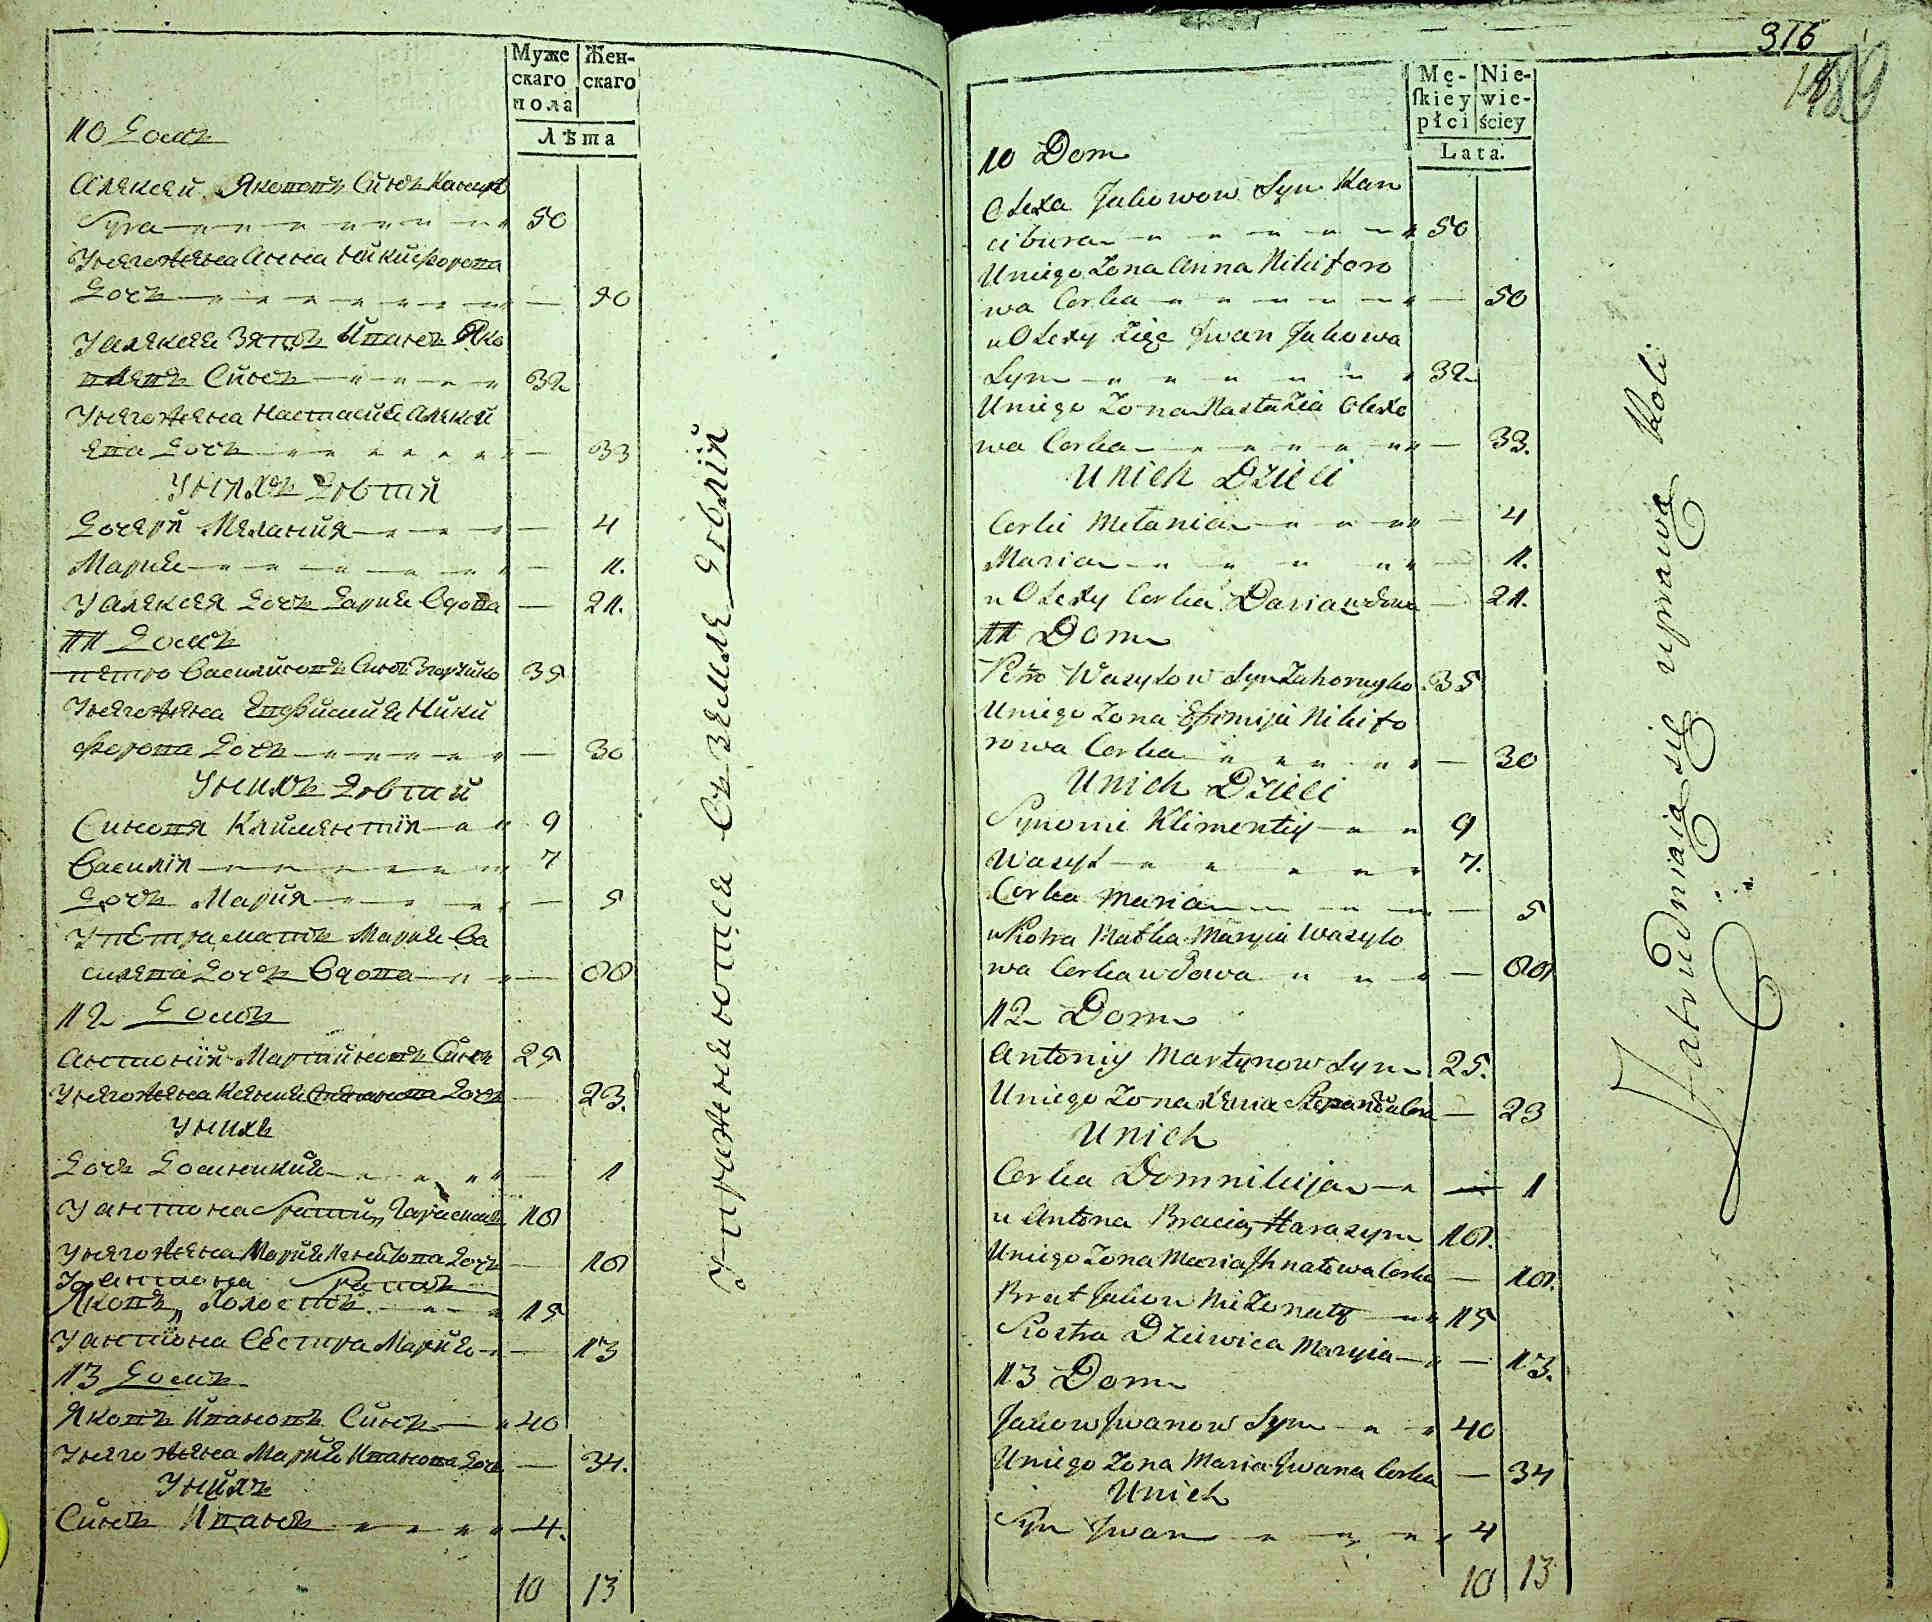 Муже
скаго
пола
Жен-
скаго
Лѣта
10 Домъ
Алексей Якововъ Синъ Канци
бура 50
Унего жена Анна Никифорова
Дочъ — 50
Уалексея Зять Иванъ Яко
влевъ Синъ 32
Унего жена Настасия Алексй
ева Дочъ — 33
Унихъ Дѣти
Дочери Мелания — 4
Мария — 1.
Уалексея Дочъ Дария Вдова — 21.
11 Домъ
Петро Василиовъ Синъ 35
Унего жена Евфимия Ники
форова Дочъ — 30
Унихъ Дѣти
Синовя Климентия 9
Василія 7
Дочъ Мария — 5
Упетра мать Мария Ва
силева Дочъ Вдова — 60
12 Домъ
Антоній Мартиновъ Синъ 25
Унего жена Ксения Степанова Дочъ — 23.
Унихъ
Дочъ Домникия — 1
Уантона Гарасимъ 18
Унего жена Мария Дочъ — 18
Уантона Братъ
Яковъ Холостъ 15
Уантона Сестра Мария — 13
13 Домъ
Яковъ Ивановъ Синъ 40
Унего жена Мария Иванова Дочъ — 34.
Унихъ
Синъ Иванъ 4.
10 13
Упражняютца Въ земле Дѣліи
316
Mę-
skiey
płci
Nie-
wie-
ściey
Lata.
10 Dom
Olexa Jakowow Syn Kan
cibura 50
Uniego Zona Anna Nikiforo
wa Corka — 50
u Olexy Zięc Jwan Jakowa
Syn 32
Uniego Zona Nastazia Olexo
wa Corka — 33.
Unich Dzieci
Corki Melania — 4
Maria — 1.
u Olexy Corka Daria wdowa — 21.
11 Dom
Petro Wasylow Syn Zahoruyko 35
Uniego Zona Efimija Nikifo
rowa Corka — 30
Unich Dzieci
Synowie Klimentiy 9
Wasyl 7.
Corka Maria — 5
u Piotra Matka Maryia Wasylo
wa Corka wdowa — 60
12 Dom
Antoniy Martynow Syn 25.
Uniego Zona Xenia Corka — 23
Unich
Corka Domnikija — 1
u Antona Bracia, Harasym 18.
Uniego Zona Maria Jhnatowa Corka — 18.
Brat Jakow Nie Zonaty 15
Siostra Dziewica Maryia — 13.
13 Dom
Jakow Jwanow Syn 40
Uniego Zona Maria Jwana Corka — 34
Unich
Syn Jwan 4
10 13
Zatrudniaią się uprawą Roli